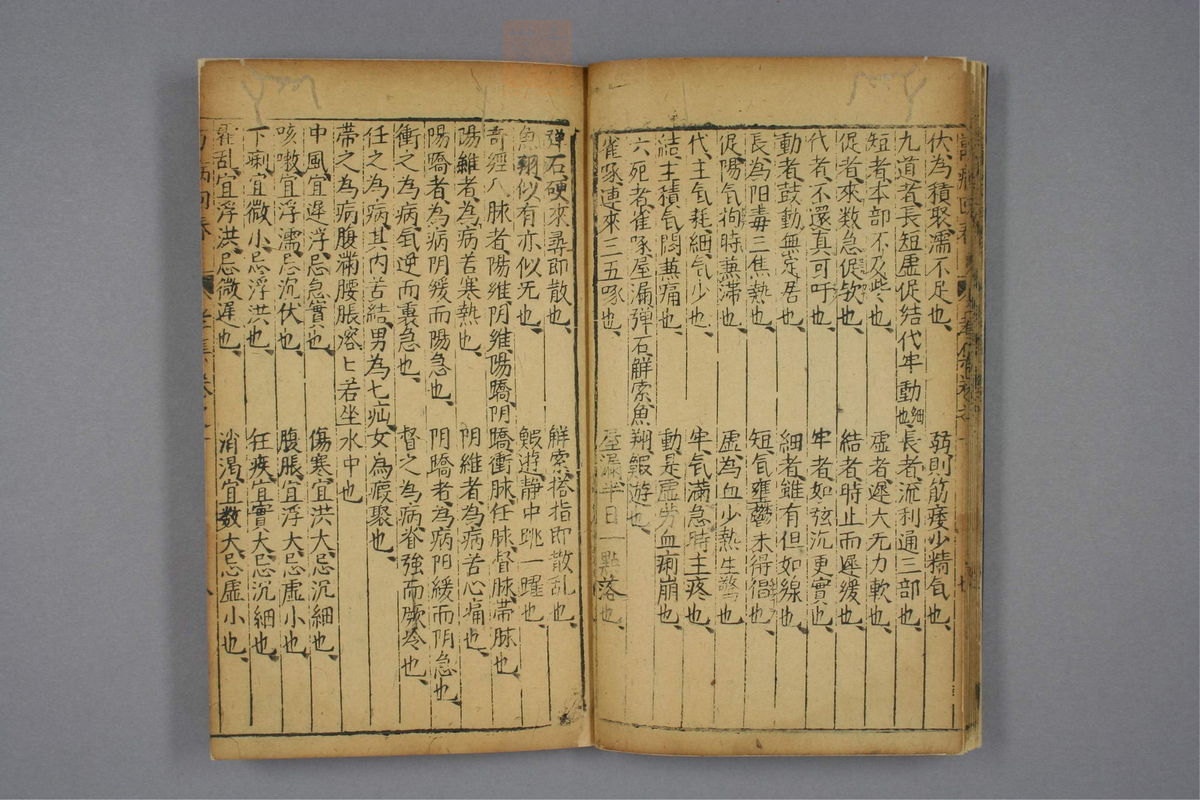 伏、為積聚濡不足也、弱則筋痿少精气也、
九道者長短虛促結代牢動細也長者、流利通三部也、
短者本部不及些也、虛者遲大无力軟也、
促者來數急促欤也、結者時止而遲緩也、
代者不還真可吁也、牢者如弦沉更實也、
動者鼓動無定居也、細者、雖有但如線也、
長為阳毒三焦熱也、短气壅鬱未得也、
促、陽气拘時兼滞也、虛為血少熱生驚也、
代、主气耗、細气少也、牢、气滿急時主疼也、
結主積气悶兼痛也、動、是虛劳血痢崩也、
六死者雀啄屋漏弹石解索魚翔鰕遊也、
雀啄連來三五啄也、屋漏半日一點落也、
弹石硬來尋即散也、解索搭指即散乱也、
魚翔似有亦似无也、鰕遊静中跳一躍也、
奇經八脉者陽維阴維陽蹻阴蹻衝脉任脉督脉帶脉也、
陽維者為病苦寒熱也、阴維者為病苦心痛也、
陽蹻者為病阴緩而陽急也、阴蹻者為病阳緩而阴急也、
衝之為病气逆而裏急也、督之為病脊強而厥冷也、
任之為病其内苦結男為七疝女為瘕聚也、
帶之為病腹滿腰脹溶匕若坐水中也
中風宜遲浮忌急實也、傷寒宜洪大忌沉細也、
咳嗽宜浮濡忌沉伏也、腹脹宜浮大忌虛小也、
下痢宜微小忌浮洪也、狂疾宜實大忌沉細也、
霍乱宜浮洪忌微遲也、消渴宜数大忌虛小也、